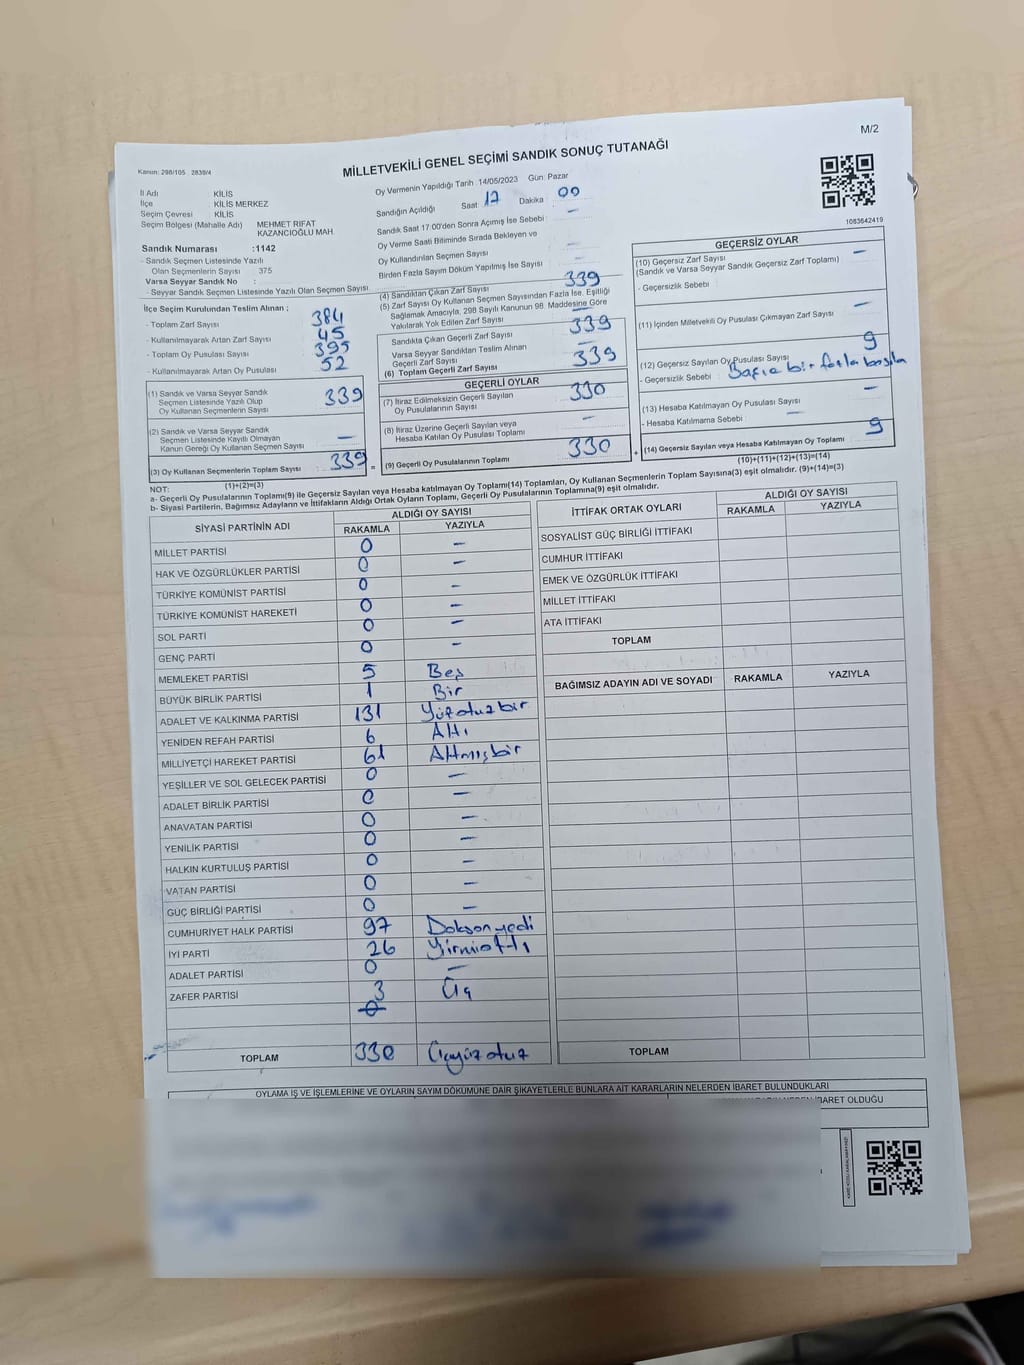 M/2
Kanun: 298/105 2839/4
MİLLETVEKİLİ GENEL SEÇİMİ SANDIK SONUÇ TUTANAĞI
1083642419
İl Adı KİLİS
İlçe KİLİS MERKEZ
Seçim Çevresi KİLİS
Seçim Bölgesi (Mahalle Adı) MEHMET RIFAT KAZANCIOĞLU MAH.
Sandık Numarası :1142
- Sandık Seçmen Listesinde Yazılı
Olan Seçmenlerin Sayısı 375
Varsa Seyyar Sandık No :
- Seyyar Sandık Seçmen Listesinde Yazılı Olan Seçmen Sayısı
Oy Vermenin Yapıldığı Tarih :14/05/2023 Gün: Pazar
Sandığın Açıldığı Saat 17 Dakika 00
Sandık Saat 17:00'den Sonra Açımış İse Sebebi : —
Oy Verme Saati Bitiminde Sırada Bekleyen ve
Oy Kullandırılan Seçmen Sayısı —
Birden Fazla Sayım Döküm Yapılmış İse Sayısı —
İlçe Seçim Kurulundan Teslim Alınan ;
- Toplam Zarf Sayısı 384
- Kullanılmayarak Artan Zarf Sayısı 45
- Toplam Oy Pusulası Sayısı 395
- Kullanılmayarak Artan Oy Pusulası 52
(1) Sandık ve Varsa Seyyar Sandık
Seçmen Listesinde Yazılı Olup
Oy Kullanan Seçmenlerin Sayısı 339
(2) Sandık ve Varsa Seyyar Sandık
Seçmen Listesinde Kayıtlı Olmayan
Kanun Gereği Oy Kullanan Seçmen Sayısı —
(3) Oy Kullanan Seçmenlerin Toplam Sayısı 339 =
(1)+(2)=(3)
(4) Sandıktan Çıkan Zarf Sayısı 339
(5) Zarf Sayısı Oy Kullanan Seçmen Sayısından Fazla İse, Eşitliği
Sağlamak Amacıyla, 298 Sayılı Kanunun 98. Maddesine Göre
Yakılarak Yok Edilen Zarf Sayısı —
Sandıkta Çıkan Geçerli Zarf Sayısı 339
Varsa Seyyar Sandıktan Teslim Alınan
Geçerli Zarf Sayısı —
(6) Toplam Geçerli Zarf Sayısı 339
GEÇERLİ OYLAR
(7) İtiraz Edilmeksizin Geçerli Sayılan
Oy Pusulalarının Sayısı 330
(8) İtiraz Üzerine Geçerli Sayılan veya
Hesaba Katılan Oy Pusulası Toplamı —
(9) Geçerli Oy Pusulalarının Toplamı 330 +
GEÇERSİZ OYLAR
(10) Geçersiz Zarf Sayısı —
(Sandık ve Varsa Seyyar Sandık Geçersiz Zarf Toplamı)
- Geçersizlik Sebebi :
(11) İçinden Milletvekili Oy Pusulası Çıkmayan Zarf Sayısı —
(12) Geçersiz Sayılan Oy Pusulası Sayısı 9
- Geçersizlik Sebebi : bir fazla
(13) Hesaba Katılmayan Oy Pusulası Sayısı —
- Hesaba Katılmama Sebebi : —
(14) Geçersiz Sayılan veya Hesaba Katılmayan Oy Toplamı 9
(10)+(11)+(12)+(13)=(14)
NOT:
a- Geçerli Oy Pusulalarının Toplamı(9) ile Geçersiz Sayılan veya Hesaba katılmayan Oy Toplamı(14) Toplamları, Oy Kullanan Seçmenlerin Toplam Sayısına(3) eşit olmalıdır. (9)+(14)=(3)
b- Siyasi Partilerin, Bağımsız Adayların ve İttifakların Aldığı Ortak Oyların Toplamı, Geçerli Oy Pusulalarının Toplamına(9) eşit olmalıdır.
SİYASİ PARTİNİN ADI ALDIĞI OY SAYISI
RAKAMLA YAZIYLA
MİLLET PARTİSİ 0 —
HAK VE ÖZGÜRLÜKLER PARTİSİ 0 —
TÜRKİYE KOMÜNİST PARTİSİ 0 —
TÜRKİYE KOMÜNİST HAREKETİ 0 —
SOL PARTİ 0 —
GENÇ PARTİ 0 —
MEMLEKET PARTİSİ 5 Beş
BÜYÜK BİRLİK PARTİSİ 1 Bir
ADALET VE KALKINMA PARTİSİ 131 Yüzotuzbir
YENİDEN REFAH PARTİSİ 6 Altı
MİLLİYETÇİ HAREKET PARTİSİ 61 Altmışbir
YEŞİLLER VE SOL GELECEK PARTİSİ 0 —
ADALET BİRLİK PARTİSİ 0 —
ANAVATAN PARTİSİ 0 —
YENİLİK PARTİSİ 0 —
HALKIN KURTULUŞ PARTİSİ 0 —
VATAN PARTİSİ 0 —
GÜÇ BİRLİĞİ PARTİSİ 0 —
CUMHURİYET HALK PARTİSİ 97 Doksanyedi
İYİ PARTİ 26 Yirmialtı
ADALET PARTİSİ 0 —
ZAFER PARTİSİ 3 Üç
0
TOPLAM 330 Üçyüzotuz
İTTİFAK ORTAK OYLARI ALDIĞI OY SAYISI
RAKAMLA YAZIYLA
SOSYALİST GÜÇ BİRLİĞİ İTTİFAKI
CUMHUR İTTİFAKI
EMEK VE ÖZGÜRLÜK İTTİFAKI
MİLLET İTTİFAKI
ATA İTTİFAKI
TOPLAM
BAĞIMSIZ ADAYIN ADI VE SOYADI RAKAMLA YAZIYLA
TOPLAM
OYLAMA İŞ VE İŞLEMLERİNE VE OYLARIN SAYIM DÖKÜMÜNE DAİR ŞİKAYETLERLE BUNLARA AİT KARARLARIN NELERDEN İBARET BULUNDUKLARI
İBARET OLDUĞU